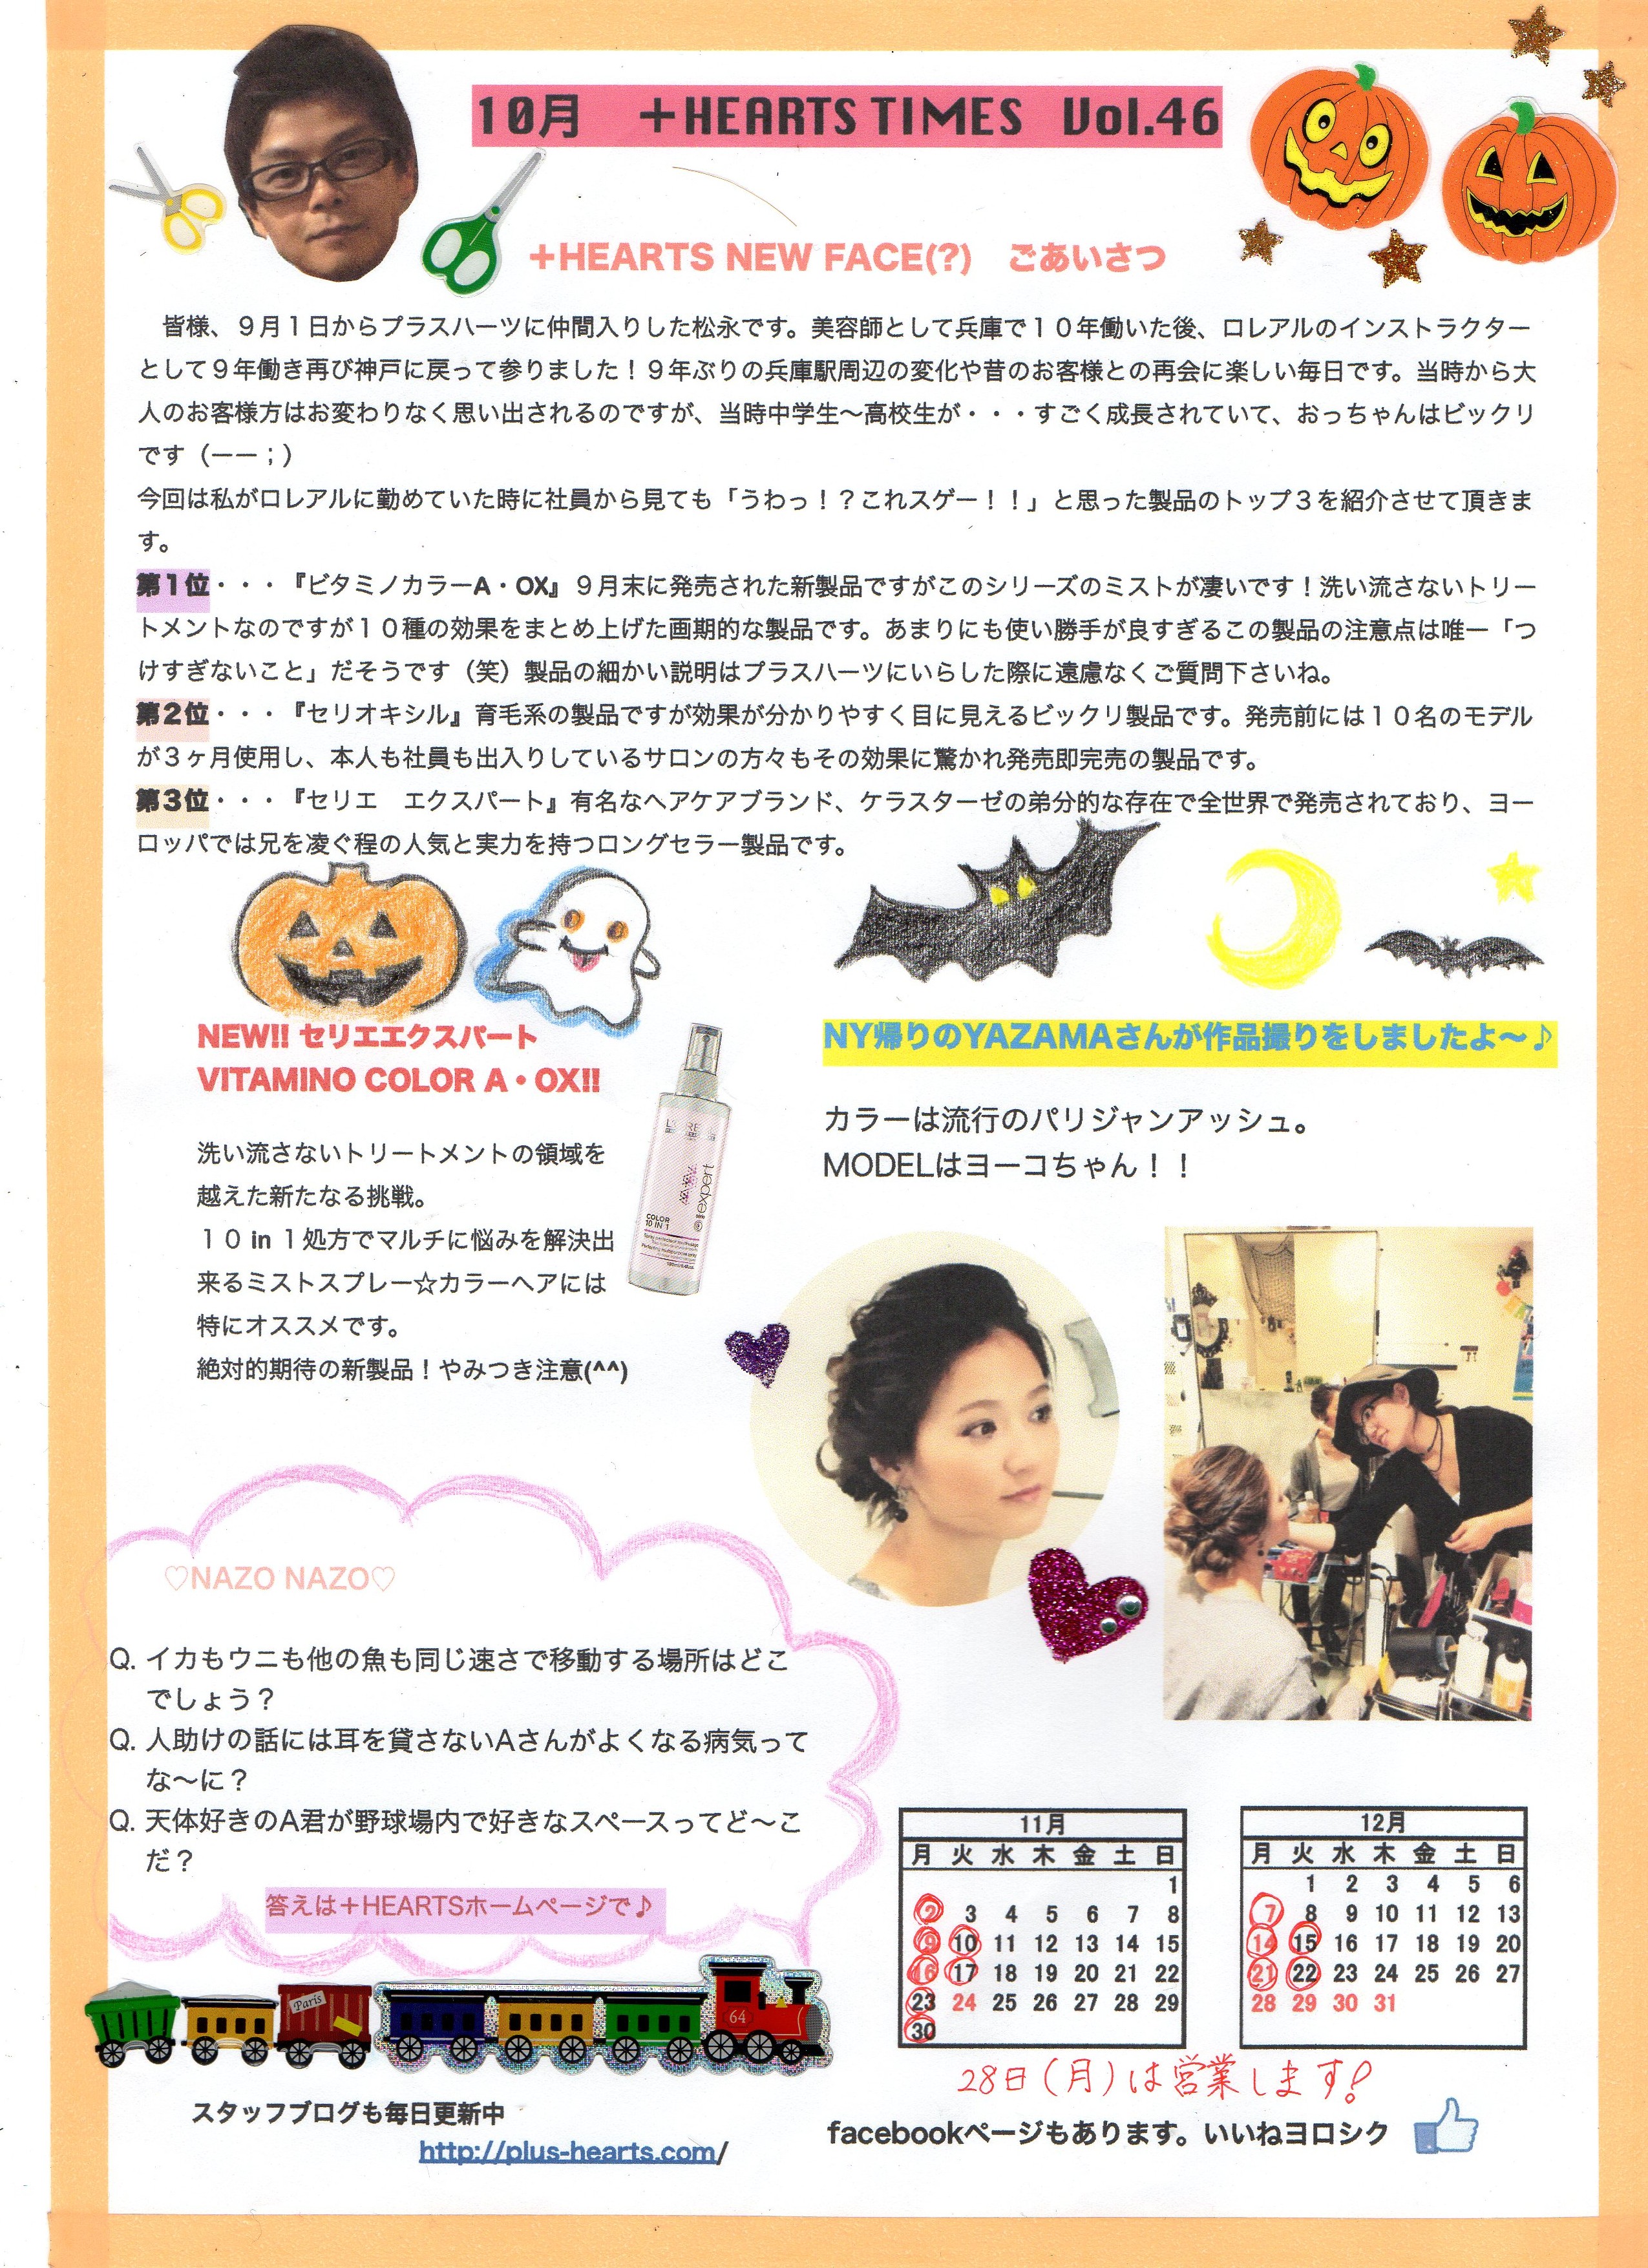 10月　+HEARTS TIMES　Vol.46
+HEARTS NEW FACE(?)　ごあいさつ
皆様、９月１日からプラスハーツに仲間入りした松永です。美容師として兵庫で１０年働いた後、ロレアルのインストラクター
として９年働き再び神戸に戻って参りました！９年ぶりの兵庫駅周辺の変化や昔のお客様との再会に楽しい毎日です。当時から大
人のお客様方はお変わりなく思い出されるのですが、当時中学生〜高校生が・・・すごく成長されていて、おっちゃんはビックリ
です（ーー；）
今回は私がロレアルに勤めていた時に社員から見ても「うわっ！？これスゲー！！」と思った製品のトップ３を紹介させて頂きま
す。
第1位・・・『ビタミノカラーA・OX』９月末に発売された新製品ですがこのシリーズのミストが凄いです！洗い流さないトリー
トメントなのですが１０種の効果をまとめ上げた画期的な製品です。あまりにも使い勝手が良すぎるこの製品の注意点は唯一「つ
けすぎないこと」だそうです（笑）製品の細かい説明はプラスハーツにいらした際に遠慮なくご質問下さいね。
第2位・・・『セリオキシル』育毛系の製品ですが効果が分かりやすく目に見えるビックリ製品です。発売前には１０名のモデル
が３ヶ月使用し、本人も社員も出入りしているサロンの方々もその効果に驚かれ発売即完売の製品です。
第3位・・・『セリエ　エクスパート』有名なヘアケアブランド、ケラスターゼの弟分的な存在で全世界で発売されており、ヨー
ロッパでは兄を凌ぐ程の人気と実力を持つロングセラー製品です。
NEW!! セリエエクスパート
VITAMINO COLOR A・OX!!
洗い流さないトリートメントの領域を
越えた新たなる挑戦。
１０ in １処方でマルチに悩みを解決出
来るミストスプレー☆カラーヘアには
特にオススメです。
絶対的期待の新製品！やみつき注意(^^)
expert
COLOR
10 IN 1
NY帰りのYAZAMAさんが作品撮りをしましたよ〜♪
カラーは流行のパリジャンアッシュ。
MODELはヨーコちゃん！！
♡NAZO NAZO♡
Q. イカもウニも他の魚も同じ速さで移動する場所はどこ
でしょう？
Q. 人助けの話には耳を貸さないAさんがよくなる病気って
な〜に？
Q. 天体好きのA君が野球場内で好きなスペースってど〜こ
だ？
答えは＋HEARTSホームページで♪
Paris
64
11月
月 火 水 木 金 土 日
1
2 3 4 5 6 7 8
9 10 11 12 13 14 15
16 17 18 19 20 21 22
23 24 25 26 27 28 29
30
12月
月 火 水 木 金 土 日
1 2 3 4 5 6
7 8 9 10 11 12 13
14 15 16 17 18 19 20
21 22 23 24 25 26 27
28 29 30 31
28日（月）は営業します！
スタッフブログも毎日更新中
http://plus-hearts.com/
facebookページもあります。いいねヨロシク